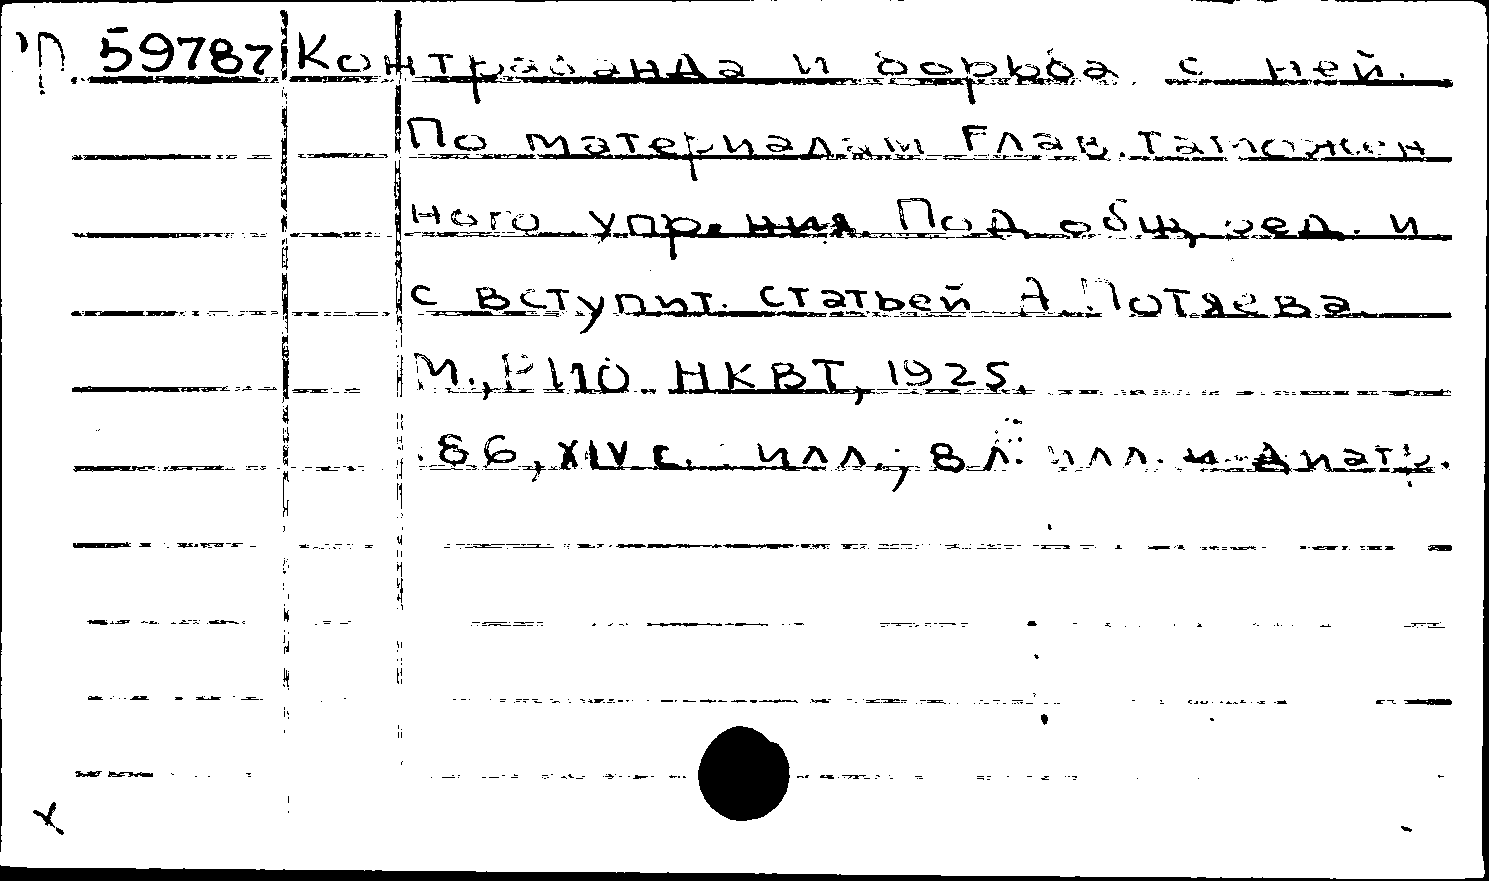 П 59787 Контрабанда и борьба с ней.
По материалам Глав. таможен
ного упр. ния. Под общ. ред. и
с вступит. статьей А. Потяева.
М., РИО НКВТ, 1925.
86, XIV с. илл.; 8 л. илл. и диагр.